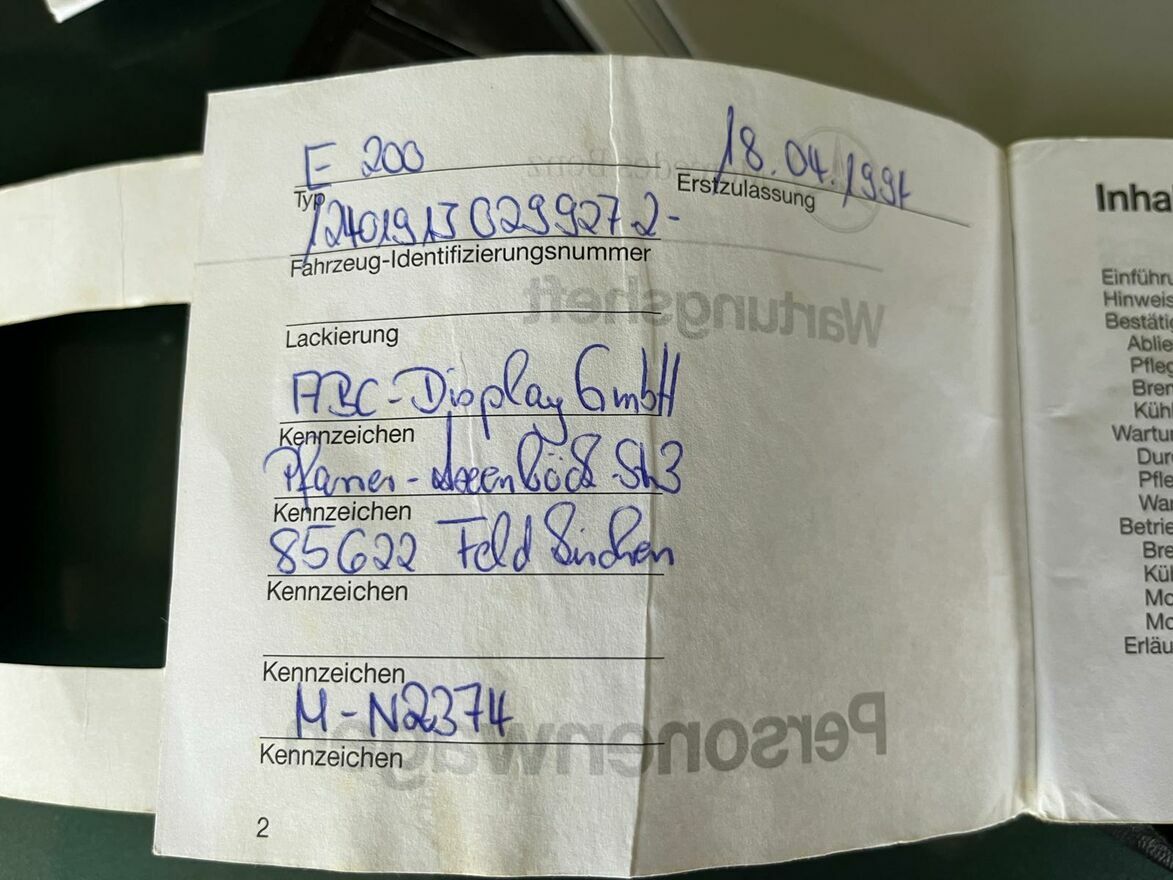 E 200
Typ
18.04.199
Erstzulassung
Fahrzeug-Identifizierungsnummer
Lackierung
ABC-Display GmbH
Kennzeichen
Pfarrer- Str 3
Kennzeichen
85622 Feldkirchen
Kennzeichen
Kennzeichen
M-N2374
Kennzeichen
2
Mercedes-Benz
Wartungsheft
Personenwagen
Inha
Einführu
Hinweis
Bestätig
Ablie
Pfleg
Brem
Kühl
Wartun
Durc
Pfle
War
Betrie
Bre
Küh
Mo
Mo
Erläu